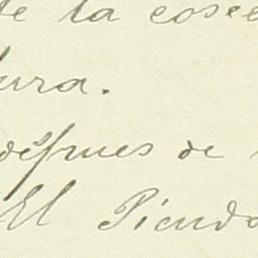 de la cosec
ura.
después de
El Piendo